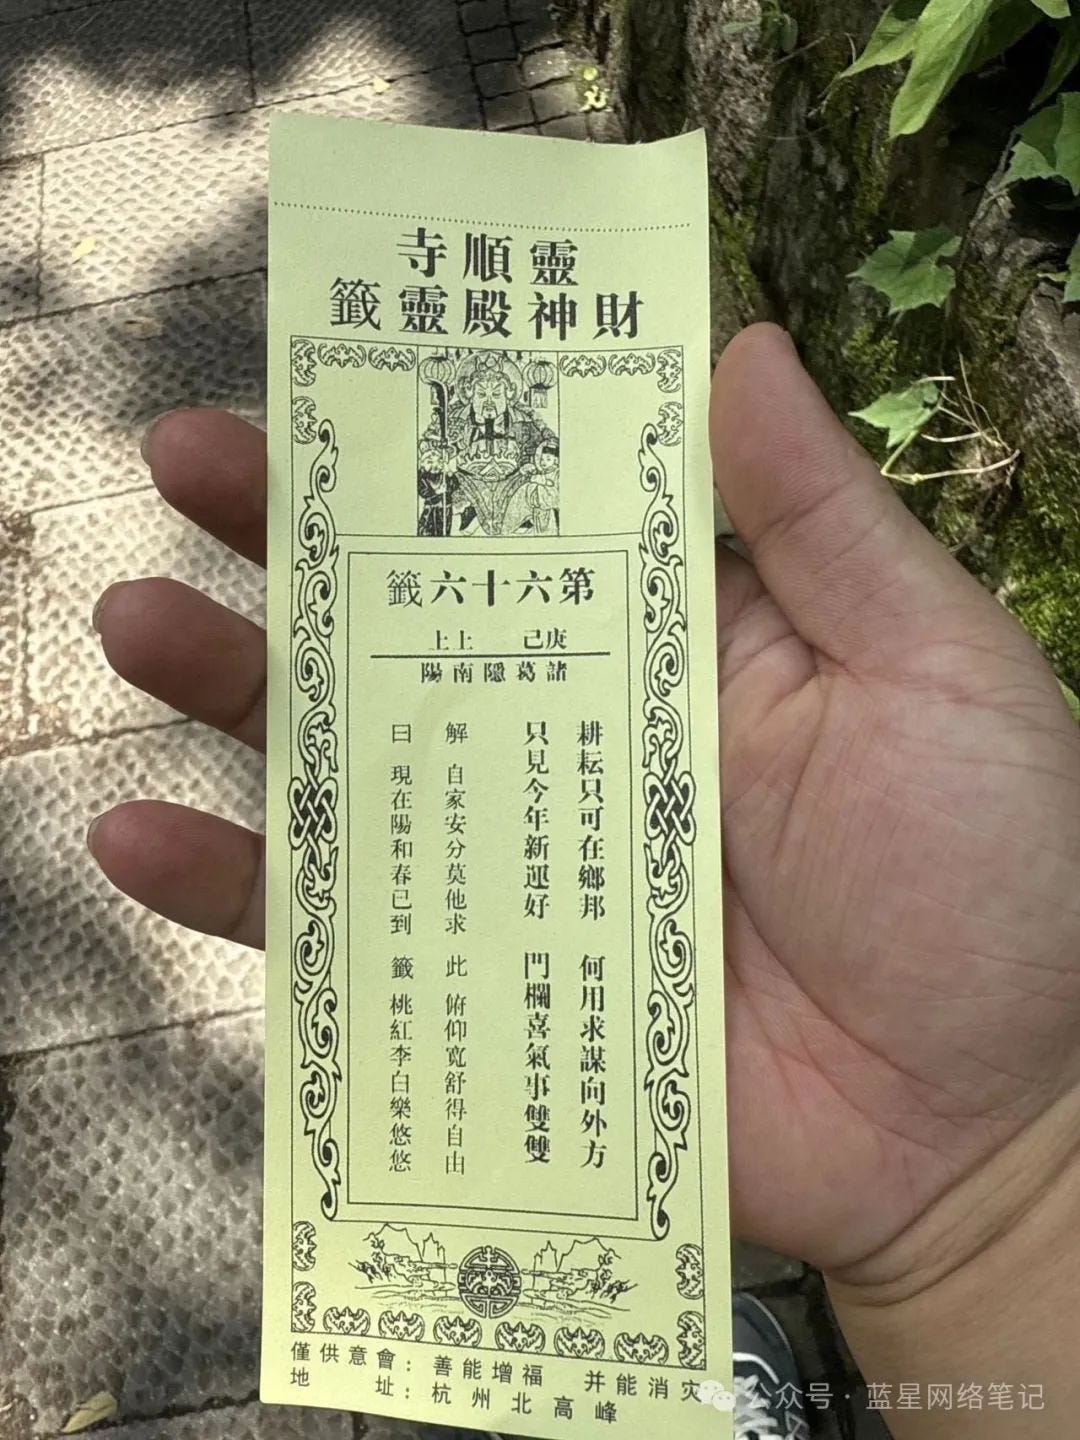 靈順寺
財神殿靈籤
第六十六籤
庚己 上上
諸葛隱南陽
耕耘只可在鄉邦 何用求謀向外方
只見今年新運好 門欄喜氣事雙雙
解 自家安分莫他求 此 俯仰寬舒得自由
曰 現在陽和春已到 籤 桃紅李白樂悠悠
僅供意會：善能增福 并能消灾
地址：杭州北高峰
公众号 · 蓝星网络笔记